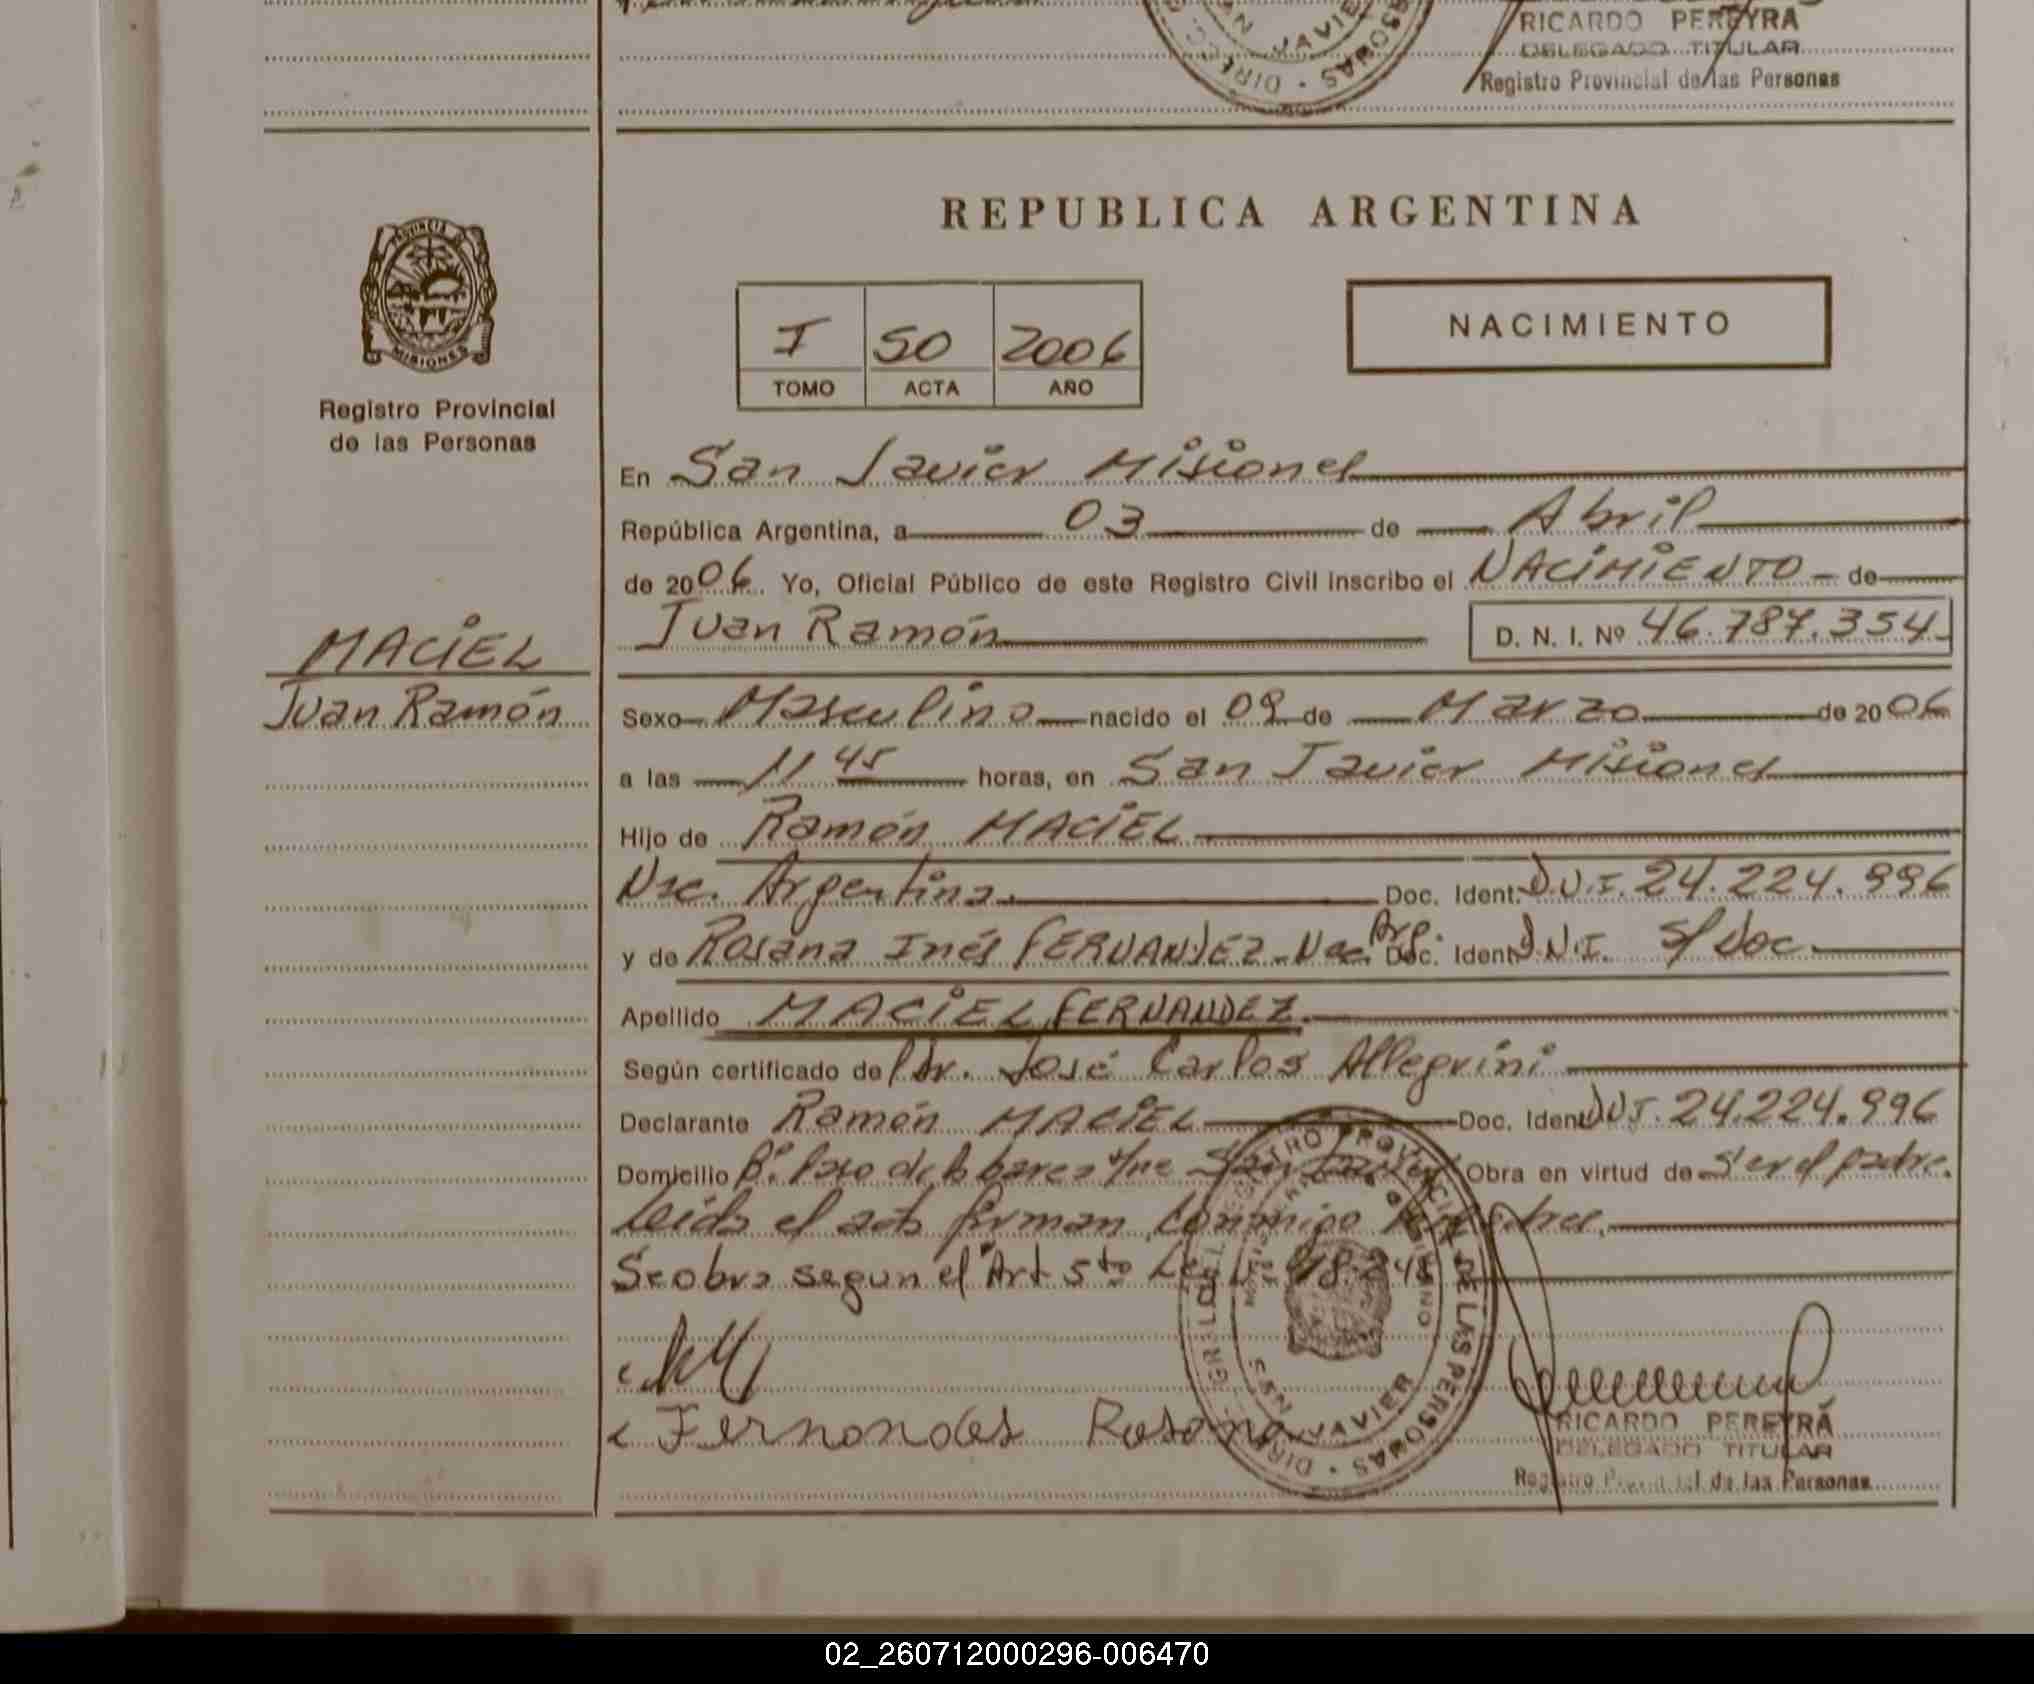 SAN JAVIER
RICARDO PEREYRA
DELEGADO TITULAR
Registro Provincial de las Personas
PROVINCIA DE
MISIONES
Registro Provincial
de las Personas
REPUBLICA ARGENTINA
I 50 2006
TOMO ACTA AÑO
NACIMIENTO
En San Javier Misiones
República Argentina, a 03 de Abril
de 2006. Yo, Oficial Público de este Registro Civil inscribo el NACIMIENTO de
Juan Ramón D. N. I. Nº 46.787.354
MACIEL
Juan Ramón
Sexo Masculino nacido el 09 de Marzo de 2006
a las 11 45 horas, en San Javier Misiones
Hijo de Ramón MACIEL
Nac. Argentina. Doc. Ident. D.N.I. 24.224.996
y de Rosana Inés FERNANDEZ - Nac. Arg. Doc. Ident. D.N.I. S/ Doc.
Apellido MACIEL FERNANDEZ.
Según certificado de Dr. José Carlos Allegrini
Declarante Ramón MACIEL Doc. Ident. DNI. 24.224.996
Domicilio Bº. Paso de la barca San Javier Obra en virtud de ser el padre.
Leída el acta firman conmigo
Se obra segun el Art 5to Ley 18.248
Fernondes Rosana
SAN JAVIER
RICARDO PEREYRA
DELEGADO TITULAR
Registro Provincial de las Personas
02_260712000296-006470